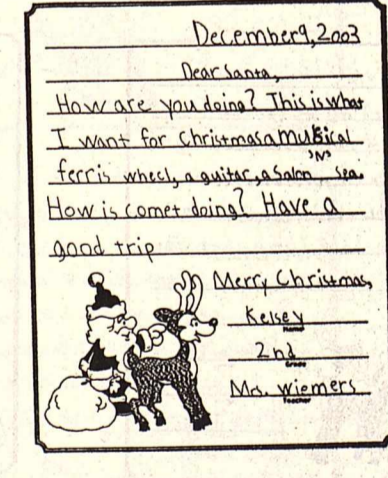 December 9, 2003
Dear Santa,
How are you doing? This is what
I want for Christmas a musical
ferris wheel, a guitar, a Salon sea.
How is comet doing? Have a
good trip
Merry Christmas,
Kelsey
Name
2nd
Grade
Mrs. Wiemers
Teacher